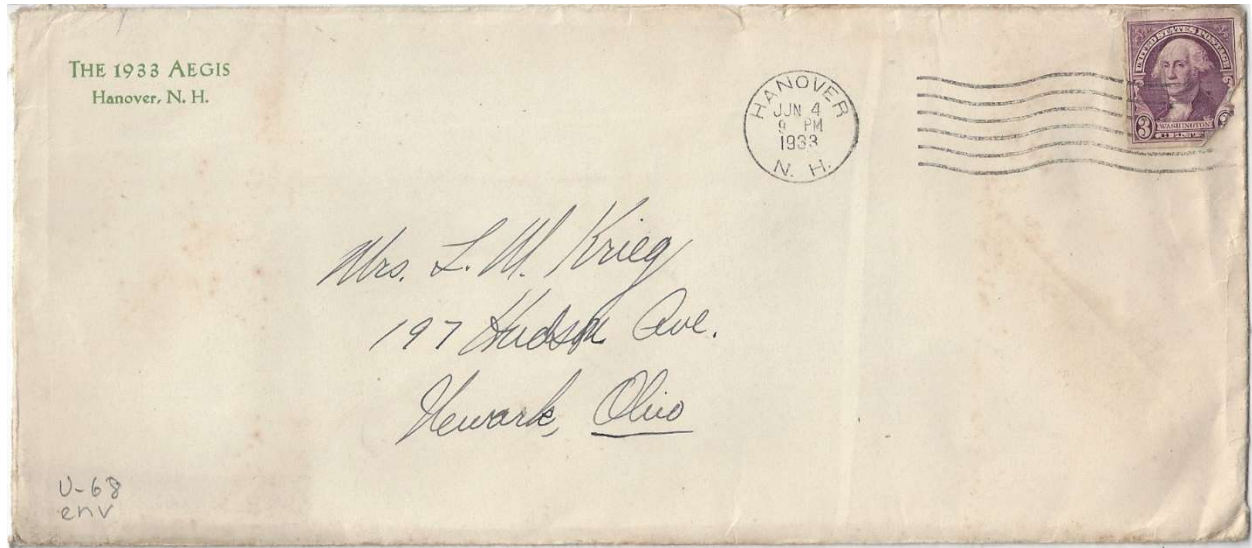 THE 1933 AEGIS
Hanover, N. H.
HANOVER
JUN 4
9 PM
1933
N. H.
UNITED STATES POSTAGE
WASHINGTON
3
CENTS
Mrs. L. M. Krieg
197 Hudson Ave.
Newark, Ohio
U-68
env